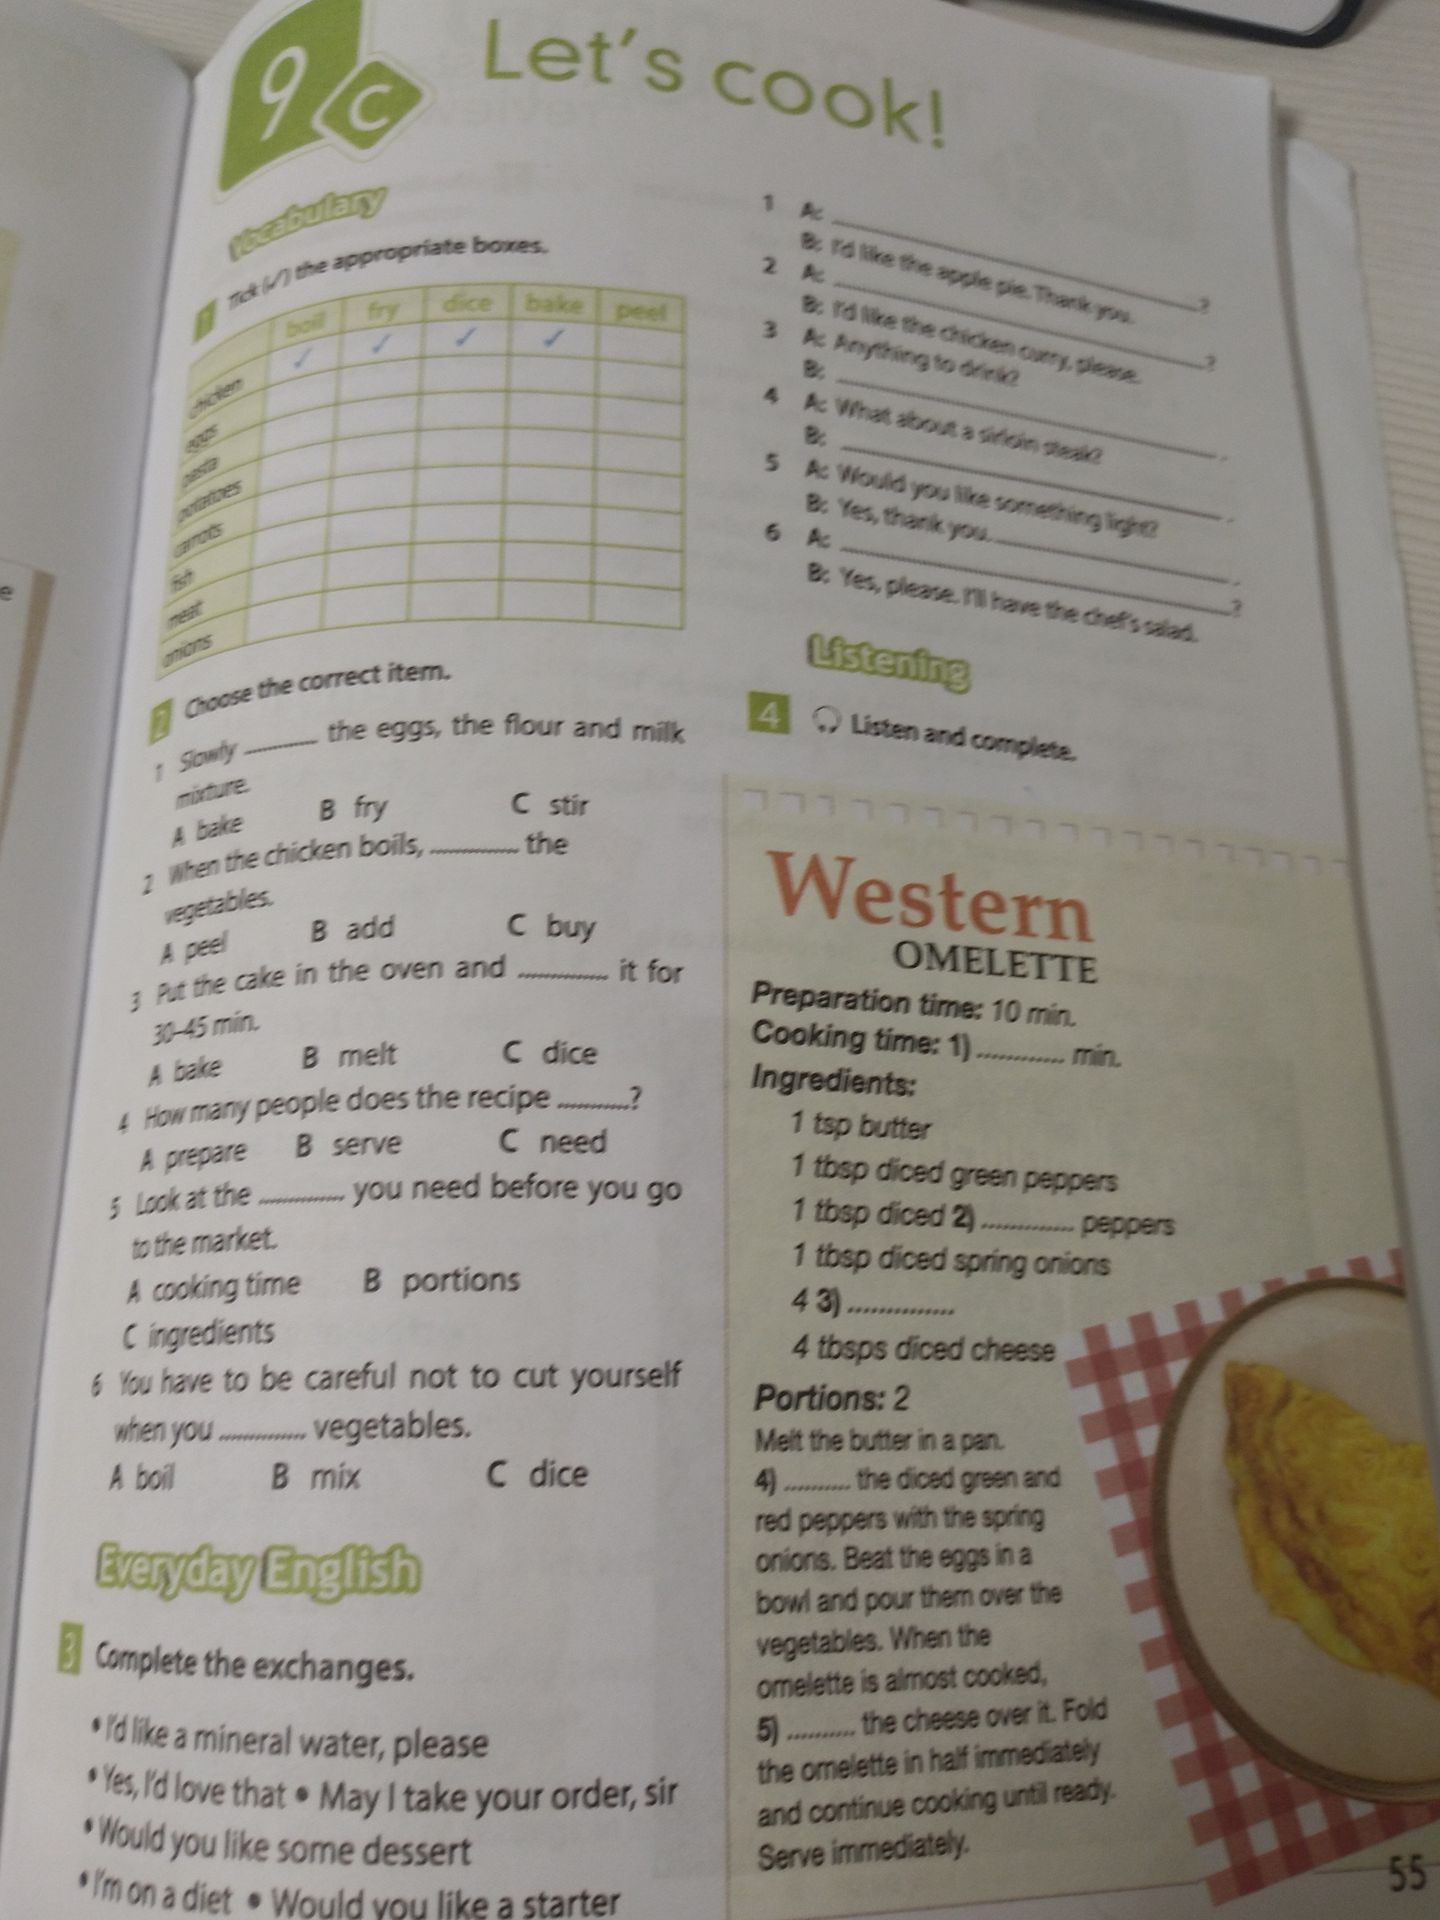 9 c Let's cook!
Vocabulary
1 Tick (✓) the appropriate boxes.
boil fry dice bake peel
chicken ✓ ✓ ✓ ✓
eggs
pasta
potatoes
carrots
fish
meat
onions
2 Choose the correct item.
1 Slowly ________ the eggs, the flour and milk
mixture.
A bake B fry C stir
2 When the chicken boils, ............. the
vegetables.
A peel B add C buy
3 Put the cake in the oven and ............. it for
30–45 min.
A bake B melt C dice
4 How many people does the recipe ............?
A prepare B serve C need
5 Look at the ............. you need before you go
to the market.
A cooking time B portions
C ingredients
6 You have to be careful not to cut yourself
when you ............. vegetables.
A boil B mix C dice
Everyday English
3 Complete the exchanges.
• I'd like a mineral water, please
• Yes, I'd love that • May I take your order, sir
• Would you like some dessert
• I'm on a diet • Would you like a starter
1 A: ________?
B: I'd like the apple pie. Thank you.
2 A: ________?
B: I'd like the chicken curry, please.
3 A: Anything to drink?
B: ________.
4 A: What about a sirloin steak?
B: ________.
5 A: Would you like something light?
B: Yes, thank you. ________.
6 A: ________?
B: Yes, please. I'll have the chef's salad.
Listening
4 Listen and complete.
Western
OMELETTE
Preparation time: 10 min.
Cooking time: 1) ............. min.
Ingredients:
1 tsp butter
1 tbsp diced green peppers
1 tbsp diced 2) ............. peppers
1 tbsp diced spring onions
4 3) ...............
4 tbsps diced cheese
Portions: 2
Melt the butter in a pan.
4) .......... the diced green and
red peppers with the spring
onions. Beat the eggs in a
bowl and pour them over the
vegetables. When the
omelette is almost cooked,
5) .......... the cheese over it. Fold
the omelette in half immediately
and continue cooking until ready.
Serve immediately.
55
e